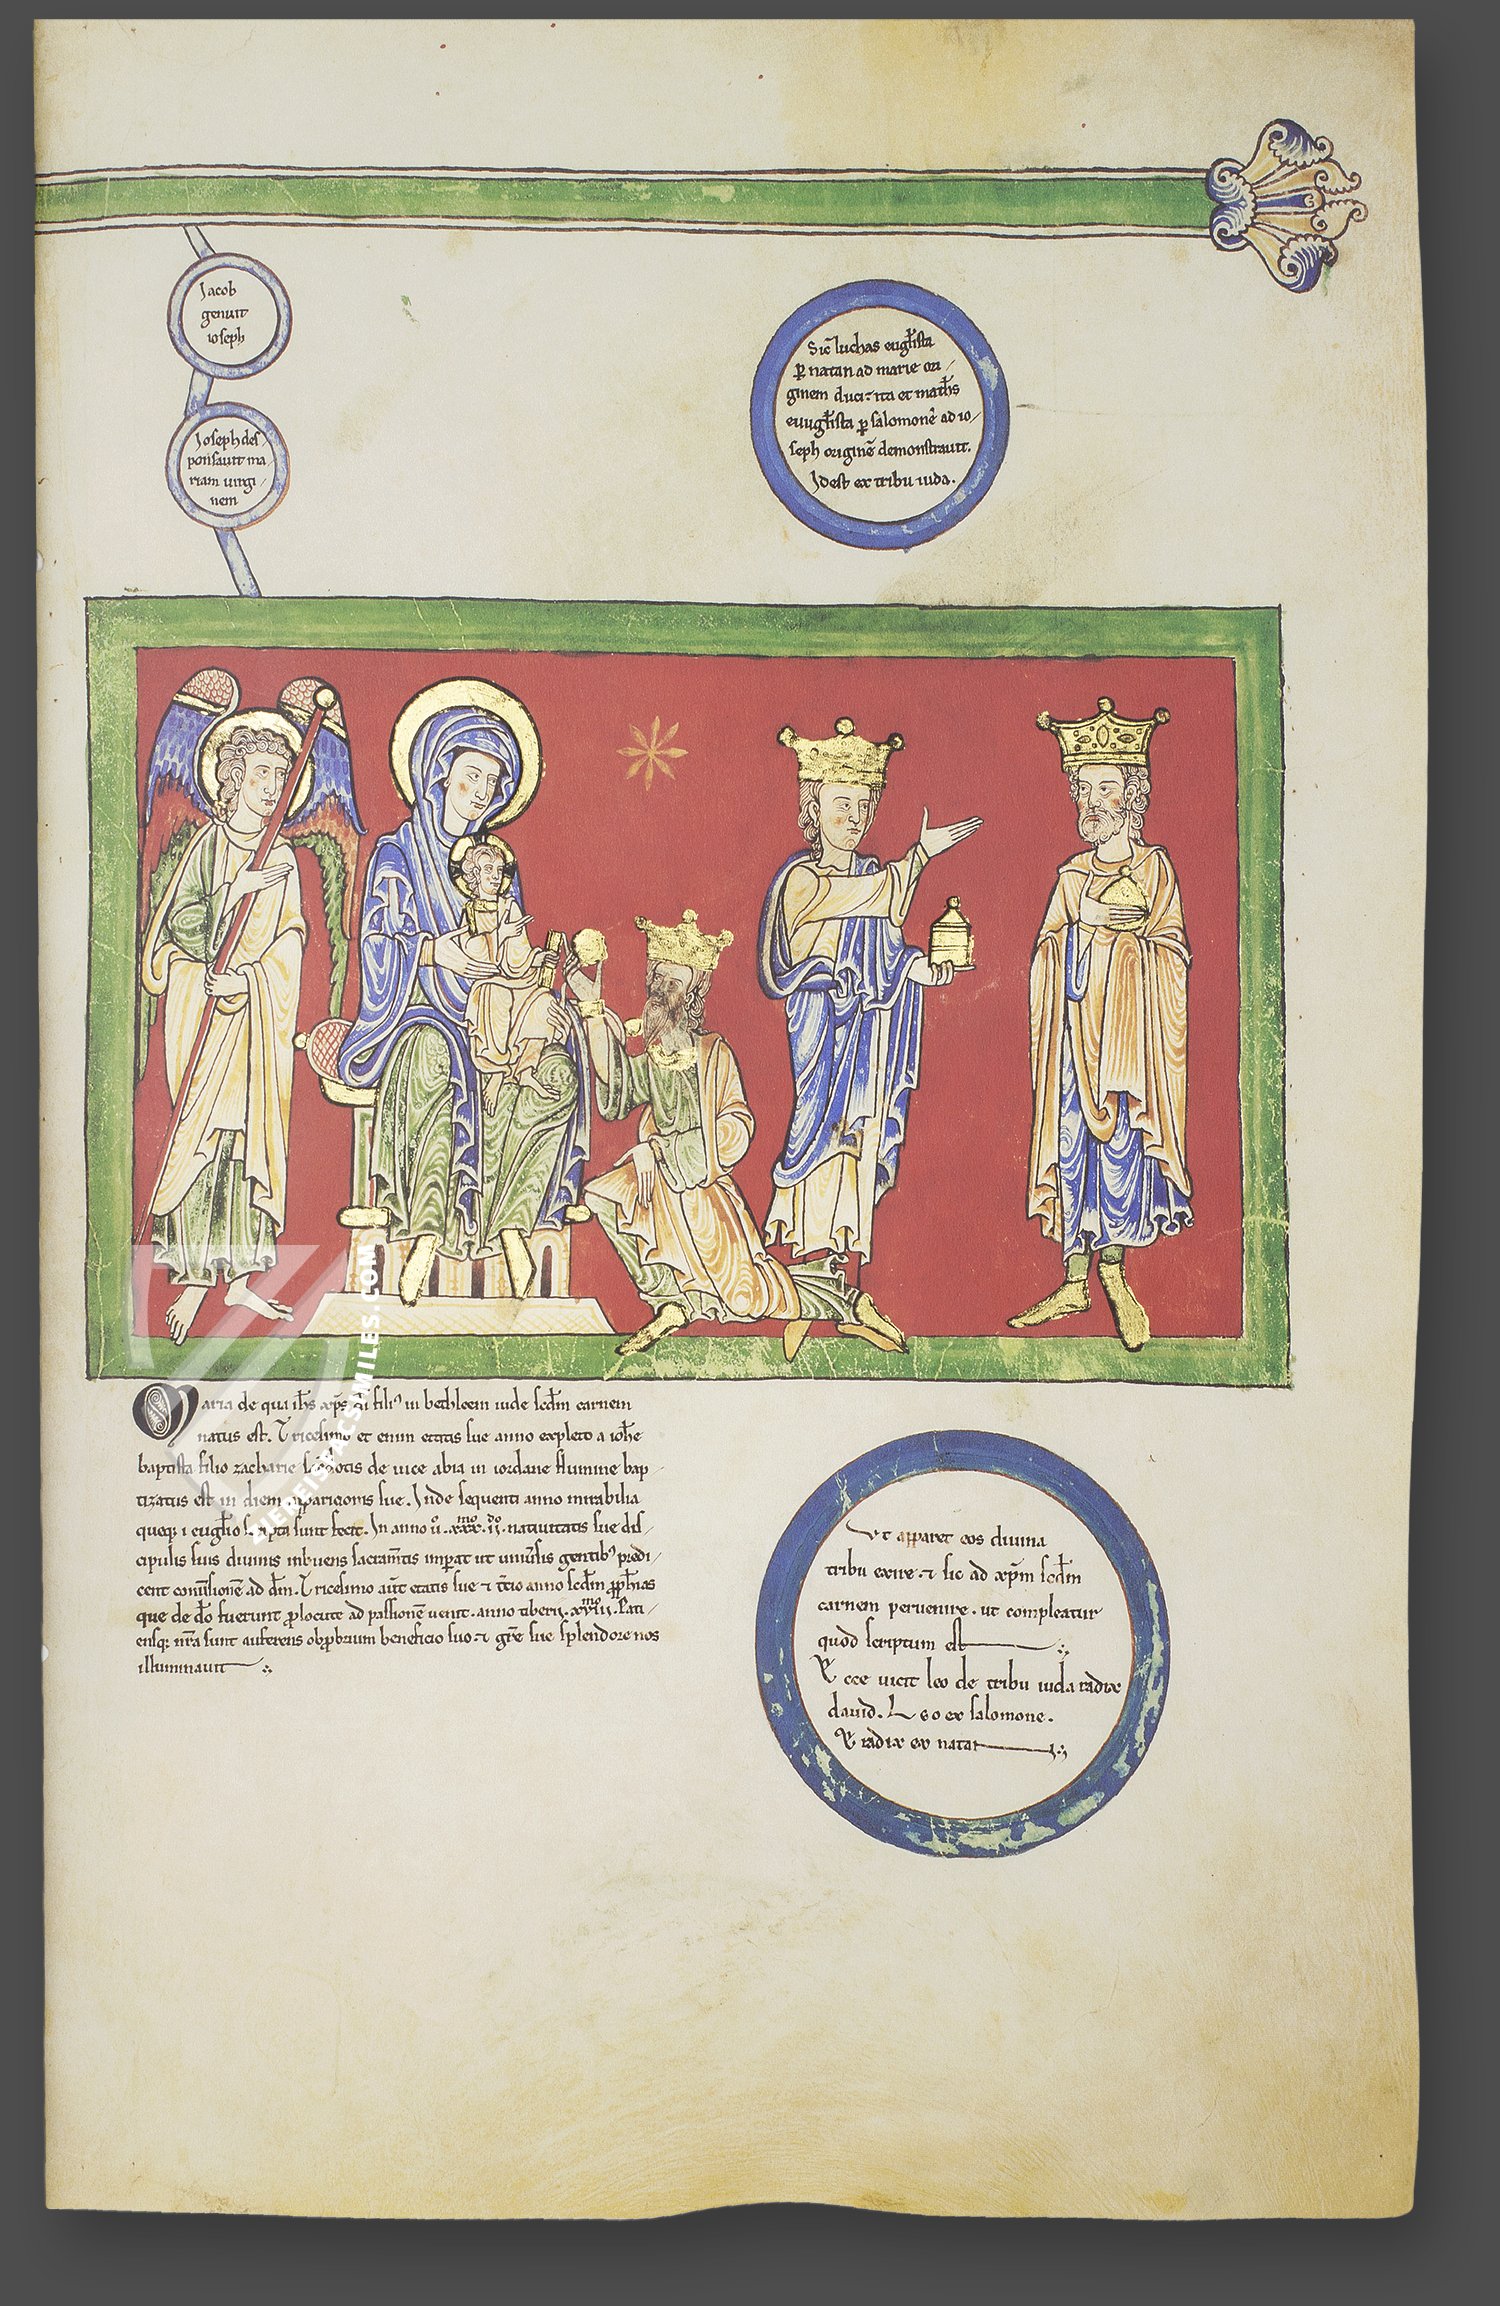 Jacob
genuit
ioseph
Joseph des
ponsauit ma
riam uirgi
nem
Sic̄ luchas eugl̄ista
ꝑ natan ad marie ori
ginem ducit ita et math̄s
euugl̄ista ꝑ salomonē ad io
seph originē demonstrauit.
Jdest ex tribu iuda.
Maria de qua ih̄s xp̄s dī filiꝰ in bethleem iude scd̄m carnem
natus est. Tricesimo et enim etatis sue anno expleto a ioh̄e
baptista filio zacharie sacerdotis de uice abia in iordane flumine bap
tizatus est in diem apparicionis sue. Jnde sequenti anno mirabilia
queq; i eugl̄io scripta sunt fecit. Jn anno natiuitatis sue dis
cipulis suis diuinis inbuens sacram̄tis imꝑat ut uniuersis gentibꝰ predi
cent conuersionē ad dm̄. Tricesimo aūt etatis sue ⁊ t̄cio anno scd̄m ꝓph̄ias
que de d̄o fuerunt ꝓlocute ad passionē uenit. anno tiberii. xviii. Pati
ensq; nr̄a sunt auferens obꝓbrium beneficio suo ⁊ gr̄e sue splendore nos
illuminauit
Vt apparet eos diuina
tribu exire ⁊ sic ad xp̄m scd̄m
carnem peruenire. ut compleatur
quod scriptum est
Ecce uicit leo de tribu iuda radix
dauid. Leo ex salomone.
Et radix ex natan
ZIEREISFACSIMILES.COM